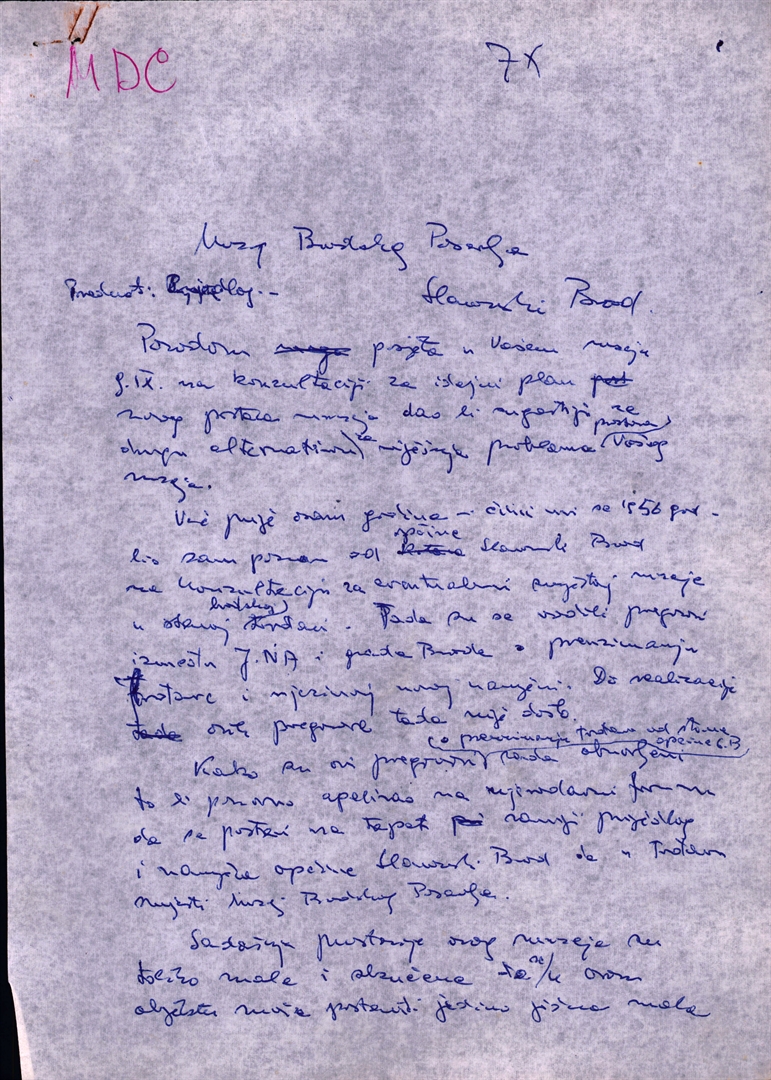 MDC
7x
Muzej Brodskog Posavlja
Predmet: Prijedlog.-
Slavonski Brod.
Povodom posjeta u Vašem muzeju
9.IX. na konzultaciji za idejni plan
novog postava muzeja dao bi sugestiju za
drugu alternativu za riješenje problema postava Vašeg
muzeja.
Već prije osam godina – čini mi se 1956 god –
bio sam pozvan od općine Slavonski Brod
na konzultaciju za eventualni smještaj muzeja
u staroj brodskoj tvrđavi. Tada su se vodili pregovori
između J.N.A i grada Broda o preuzimanju
tvrđave i njezinoj novoj namjeni. Do realizacije
ovih pregovora tada nije došlo.
Kako su ovi pregovori o preuzimanju tvrđave od strane
općine S.B sada obnovljeni
to bi ponovno apelirao na mjerodavni forum
da se postavi na tapet raniji prijedlog
i namjera općine Slavonski Brod da u Tvrđavu
smjesti Muzej Brodskog Posavlja.
Sadašnje prostorije ovog muzeja su
toliko male i skučene da se u ovom
objektu može postaviti jedino jedna mala